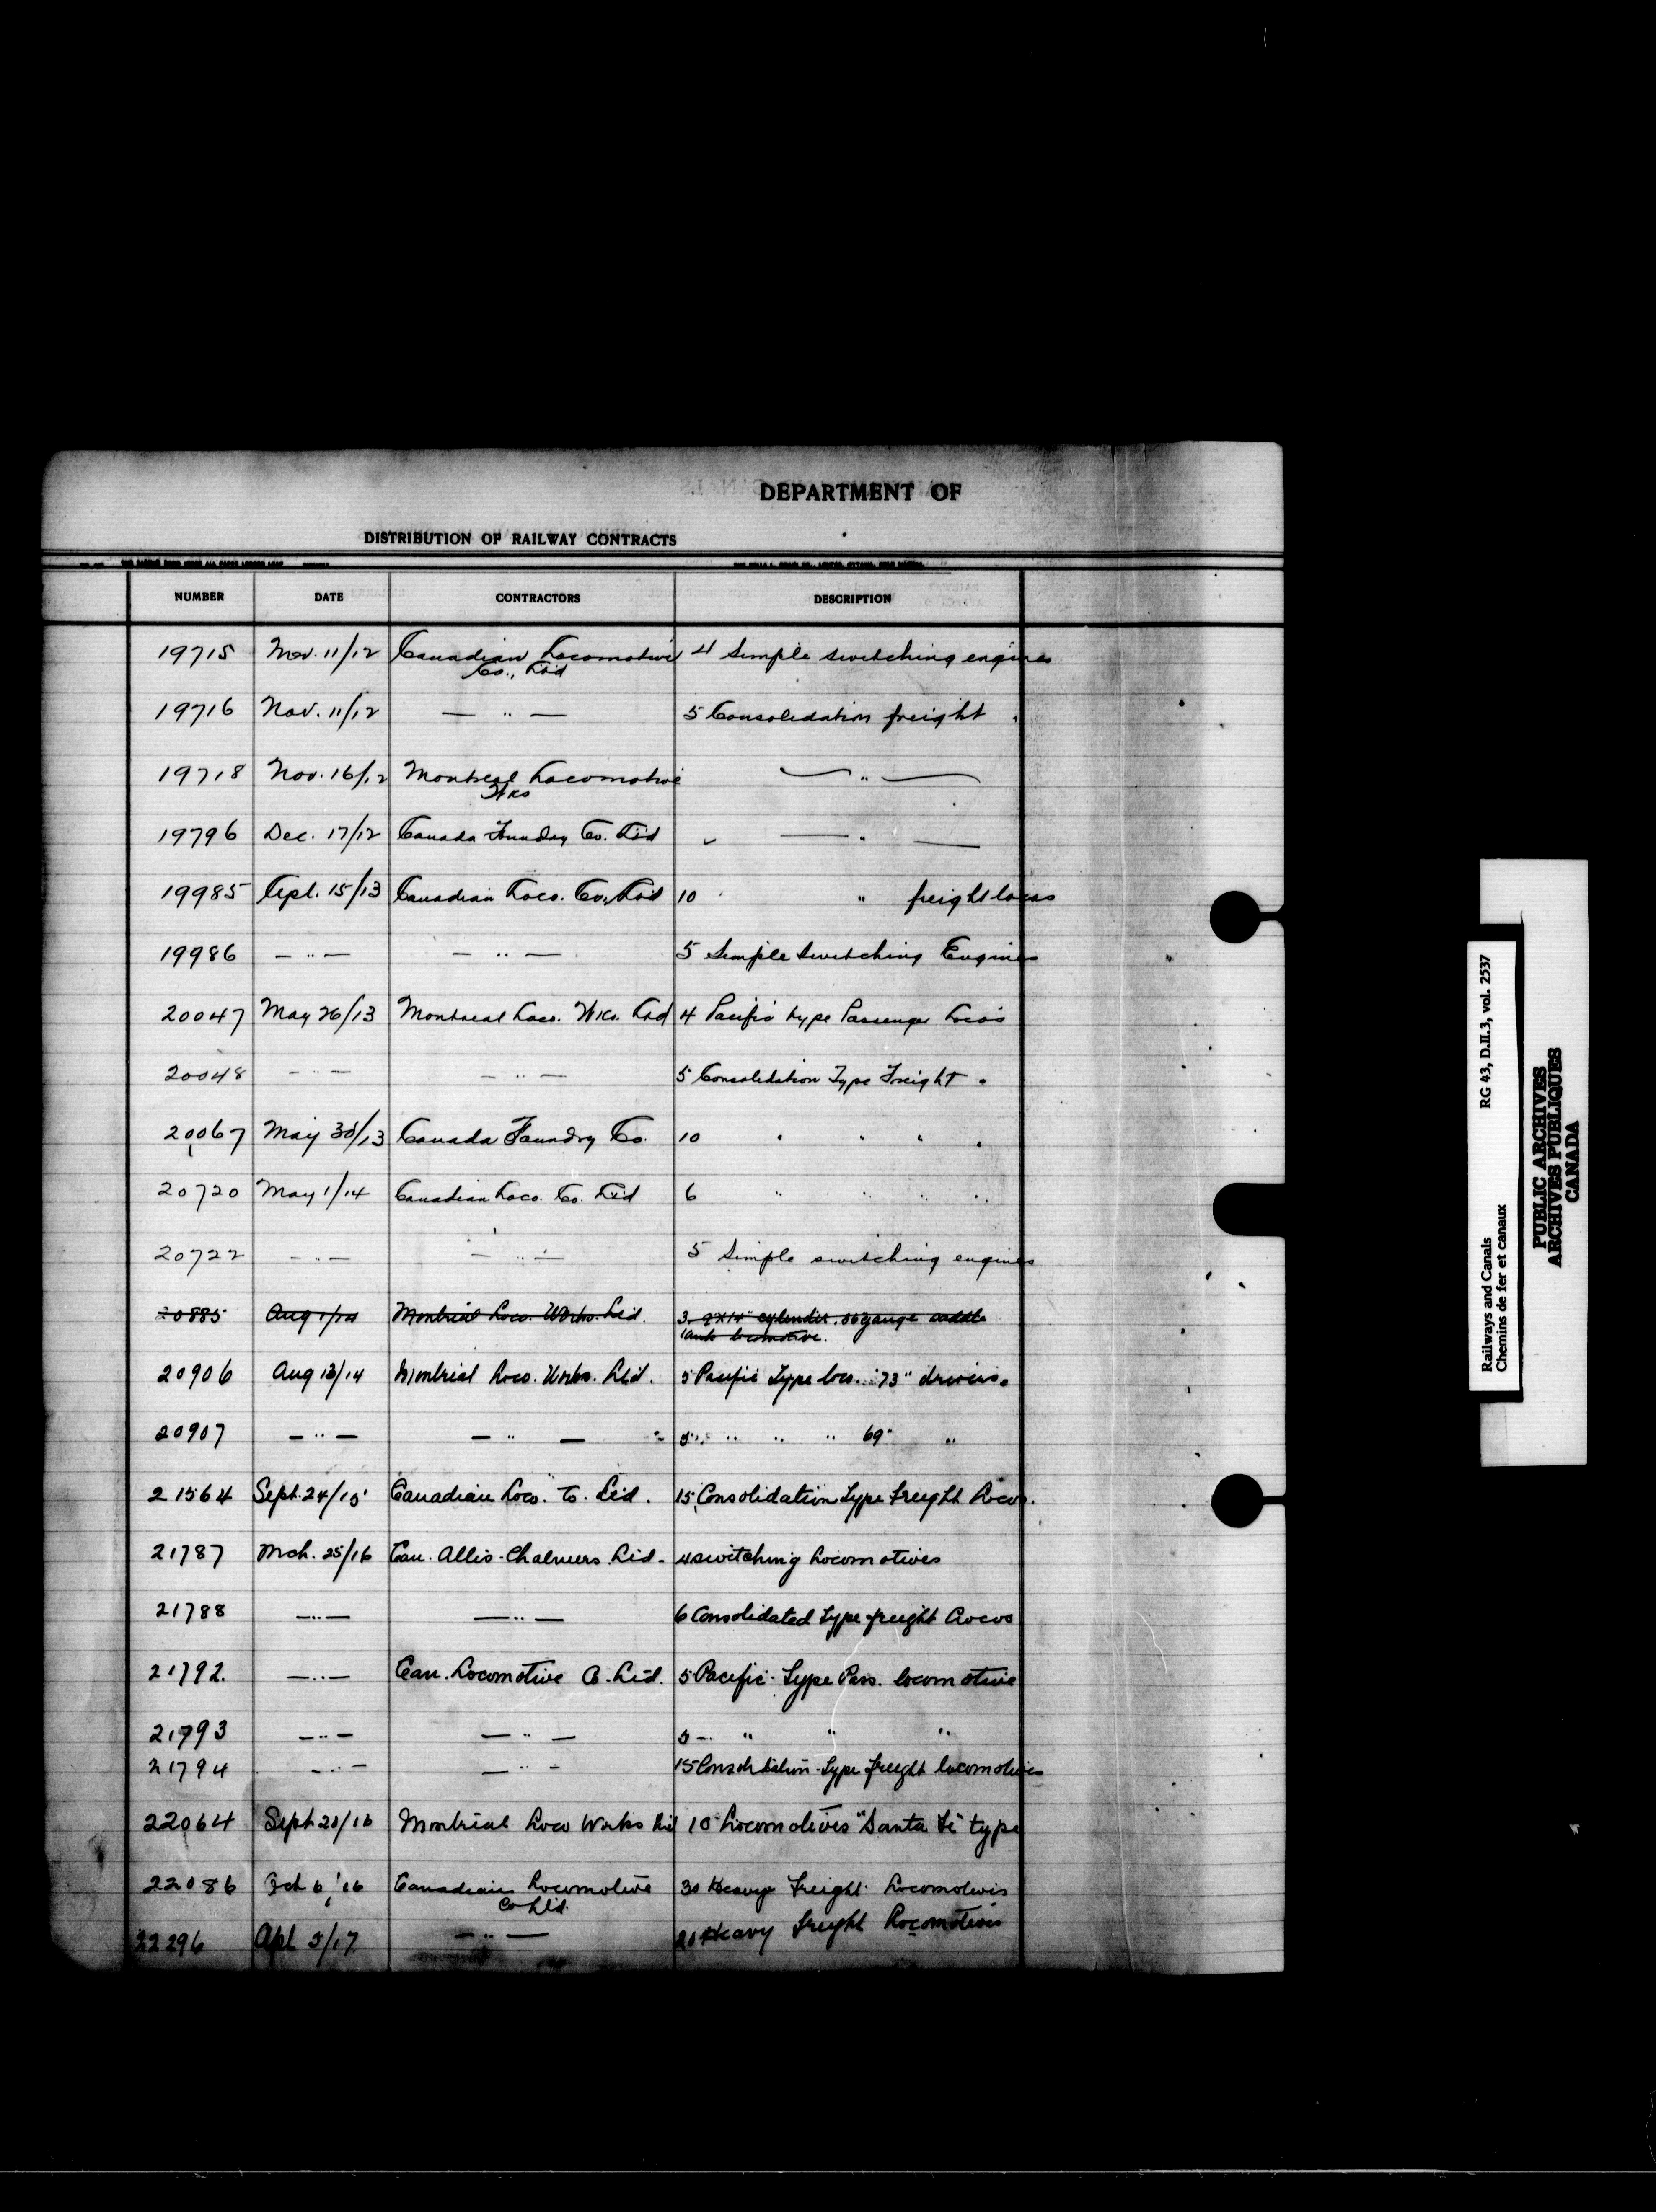 DEPARTMENT OF
DISTRIBUTION OF RAILWAY CONTRACTS
NUMBER DATE CONTRACTORS DESCRIPTION
19715 Nov. 11/12 Canadian Locomotive 4 Simple switching engines
Co., Ltd
19716 Nov. 11/12 — " — 5 Consolidation freight "
19718 Nov. 16/12 Montreal Locomotive — " —
Wks
19796 Dec. 17/12 Canada Foundry Co. Ltd " — " —
19985 Apl. 15/13 Canadian Loco. Co. Ltd 10 " freight locos
19986 — " — — " — 5 Simple switching Engines
20047 May 26/13 Montreal Loco. Wks. Ltd 4 Pacific type Passenger Loco's
20048 — " — — " — 5 Consolidation Type Freight "
20067 May 30/13 Canada Foundry Co. 10 " " " "
20720 May 1/14 Canadian Loco. Co. Ltd 6 " " " "
20722 — " — — " — 5 Simple switching engines
20885 Aug 1/14 Montreal Loco. Works. Ltd. 3 9"x14" cylinder. 36 gauge saddle
tank locomotive.
20906 Aug 13/14 Montreal Loco. Works. Ltd. 5 Pacific Type loco. 73" drivers.
20907 — " — — " — 5 " " " " 69" "
21564 Sept. 24/15 Canadian Loco. Co. Ltd. 15 Consolidation Type Freight Locos.
21787 Mch. 25/16 Can. Allis-Chalmers Ltd. 4 switching Locomotives
21788 — " — — " — 6 Consolidated Type freight Locos
21792. — " — Can. Locomotive Co. Ltd. 5 Pacific-Type Pass. locomotive
21793 — " — — " — 5 — " " "
21794 — " — — " — 15 Consolidation-Type freight locomotives
22064 Sept 20/16 Montreal Loco Works Ltd 10 Locomotives "Santa Fe" type
22086 Oct 6 '16 Canadian Locomotive 30 Heavy Freight Locomotives
Co Ltd.
22296 Apl 5/17 — " — 20 Heavy freight Locomotives
Railways and Canals RG 43, D.II.3, vol. 2537
Chemins de fer et canaux
PUBLIC ARCHIVES
ARCHIVES PUBLIQUES
CANADA